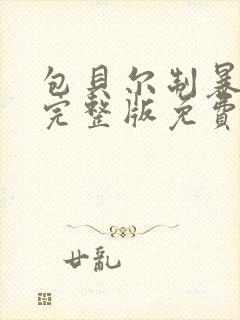 包貝尔制暴
完整版免費
廿亂